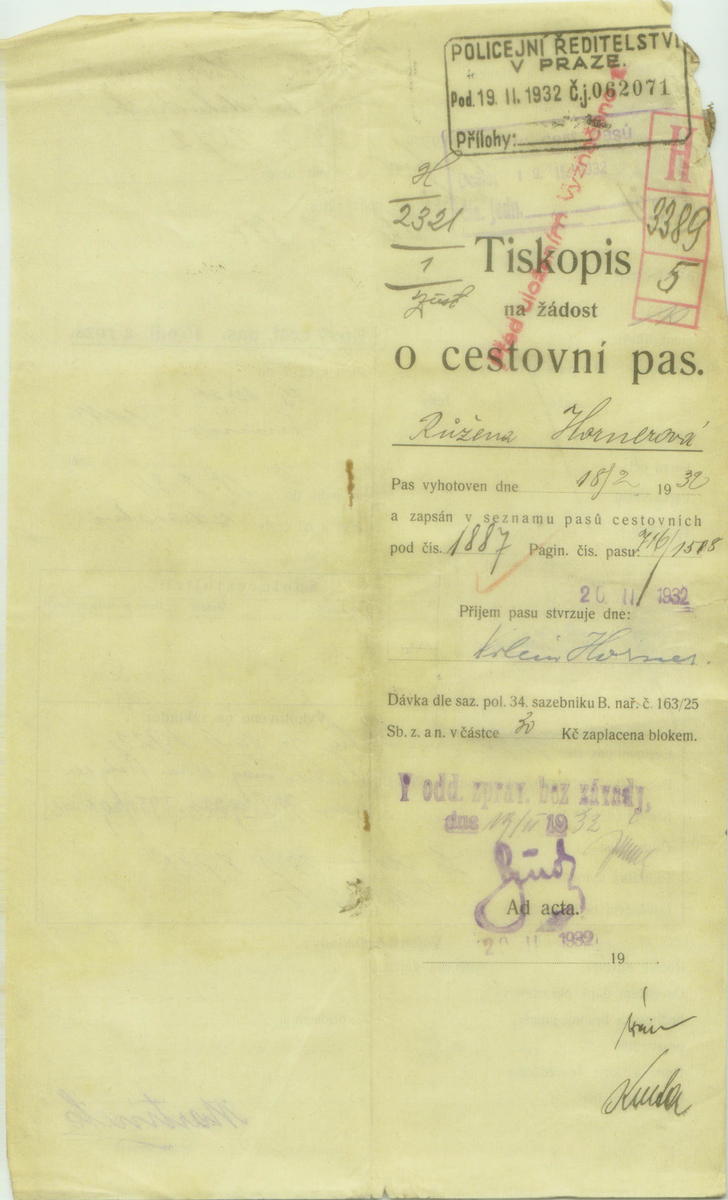 POLICEJNÍ ŘEDITELSTVÍ
V PRAZE.
Pod. 19. II. 1932 Č.j. 062071
Přílohy:
H
2321
1
H
3389
5
Před uložením vyznačeno
Tiskopis
na žádost
o cestovní pas.
Růžena Hornerová
Pas vyhotoven dne 18/2 1932
a zapsán v seznamu pasů cestovních
pod čís. 1887 Pagin. čís. pasu: 716/1508
20 II 1932
Příjem pasu stvrzuje dne:
Horner.
Dávka dle saz. pol. 34. sazebníku B. nař. č. 163/25
Sb. z. a n. v částce 30 Kč zaplacena blokem.
V odd. zprav. bez závady,
dne 19/II 1932
Ad acta.
20 II 1932
19